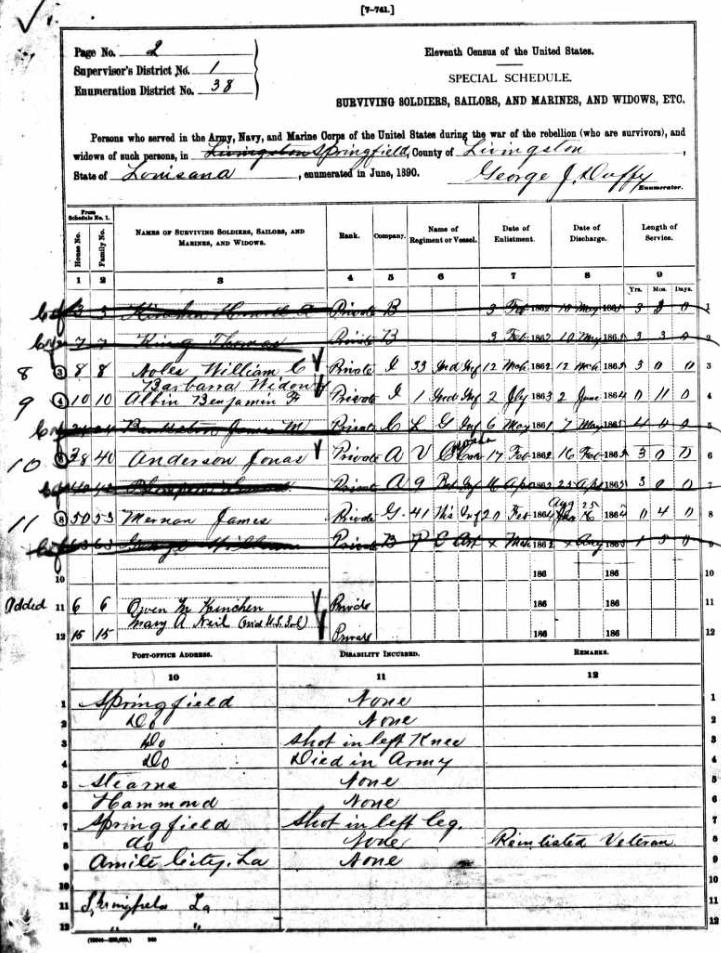 [7-741.]
Page No. 2
Supervisor's District No. 1
Enumeration District No. 38
Eleventh Census of the United States.
SPECIAL SCHEDULE.
SURVIVING SOLDIERS, SAILORS, AND MARINES, AND WIDOWS, ETC.
Persons who served in the Army, Navy, and Marine Corps of the United States during the war of the rebellion (who are survivors), and
widows of such persons, in Livingston Springfield, County of Livingston,
State of Louisana, enumerated in June, 1890. George J. Duffy
Enumerator.
From Schedule No. 1.
House No. Family No. NAMES OF SURVIVING SOLDIERS, SAILORS, AND MARINES, AND WIDOWS. Rank. Company. Name of Regiment or Vessel. Date of Enlistment. Date of Discharge. Length of Service.
1 2 3 4 5 6 7 8 9
Yrs. Mos. Days.
3 3 Private B 3 Feb 1862 10 May 1865 3 3 0 1
7 7 King Thomas Private B 3 Feb 1862 10 May 1865 3 3 0 2
8 3 8 8 Noles William C Private I 33 Ind Inf 12 Mch 1862 12 Mch 1865 3 0 0 3
Barbarra Widow
9 4 10 10 Albin Benjamin F Private I 1 Ind Inf 2 July 1863 2 June 1864 0 11 0 4
James M Private C Inf 6 May 1861 7 May 1865 4 0 0 5
10 6 38 40 Anderson Jonas Private A 17 Feb 1862 16 Feb 1865 3 0 0 6
Private A 9 1862 25 Apl 1865 3 0 0 7
11 8 50 53 James Private G 41 Wis Inf 20 Feb 1864 Aug 25 1864 0 4 0 8
63 63 George William Private B Art 1862 Aug 9
10 186 186 10
Added 11 6 6 Owen M Kinchen Private 186 186 11
12 15 15 Mary A Neil Private 186 186 12
POST-OFFICE ADDRESS. DISABILITY INCURRED. REMARKS.
10 11 12
1 Springfield None 1
2 Do None 2
3 Do Shot in left Knee 3
4 Do Died in Army 4
5 Stearns None 5
6 Hammond None 6
7 Springfield Shot in left leg. 7
8 do None Reinlisted Veteran 8
9 Amite City, La None 9
10 10
11 Springfield La 11
12 " " 12